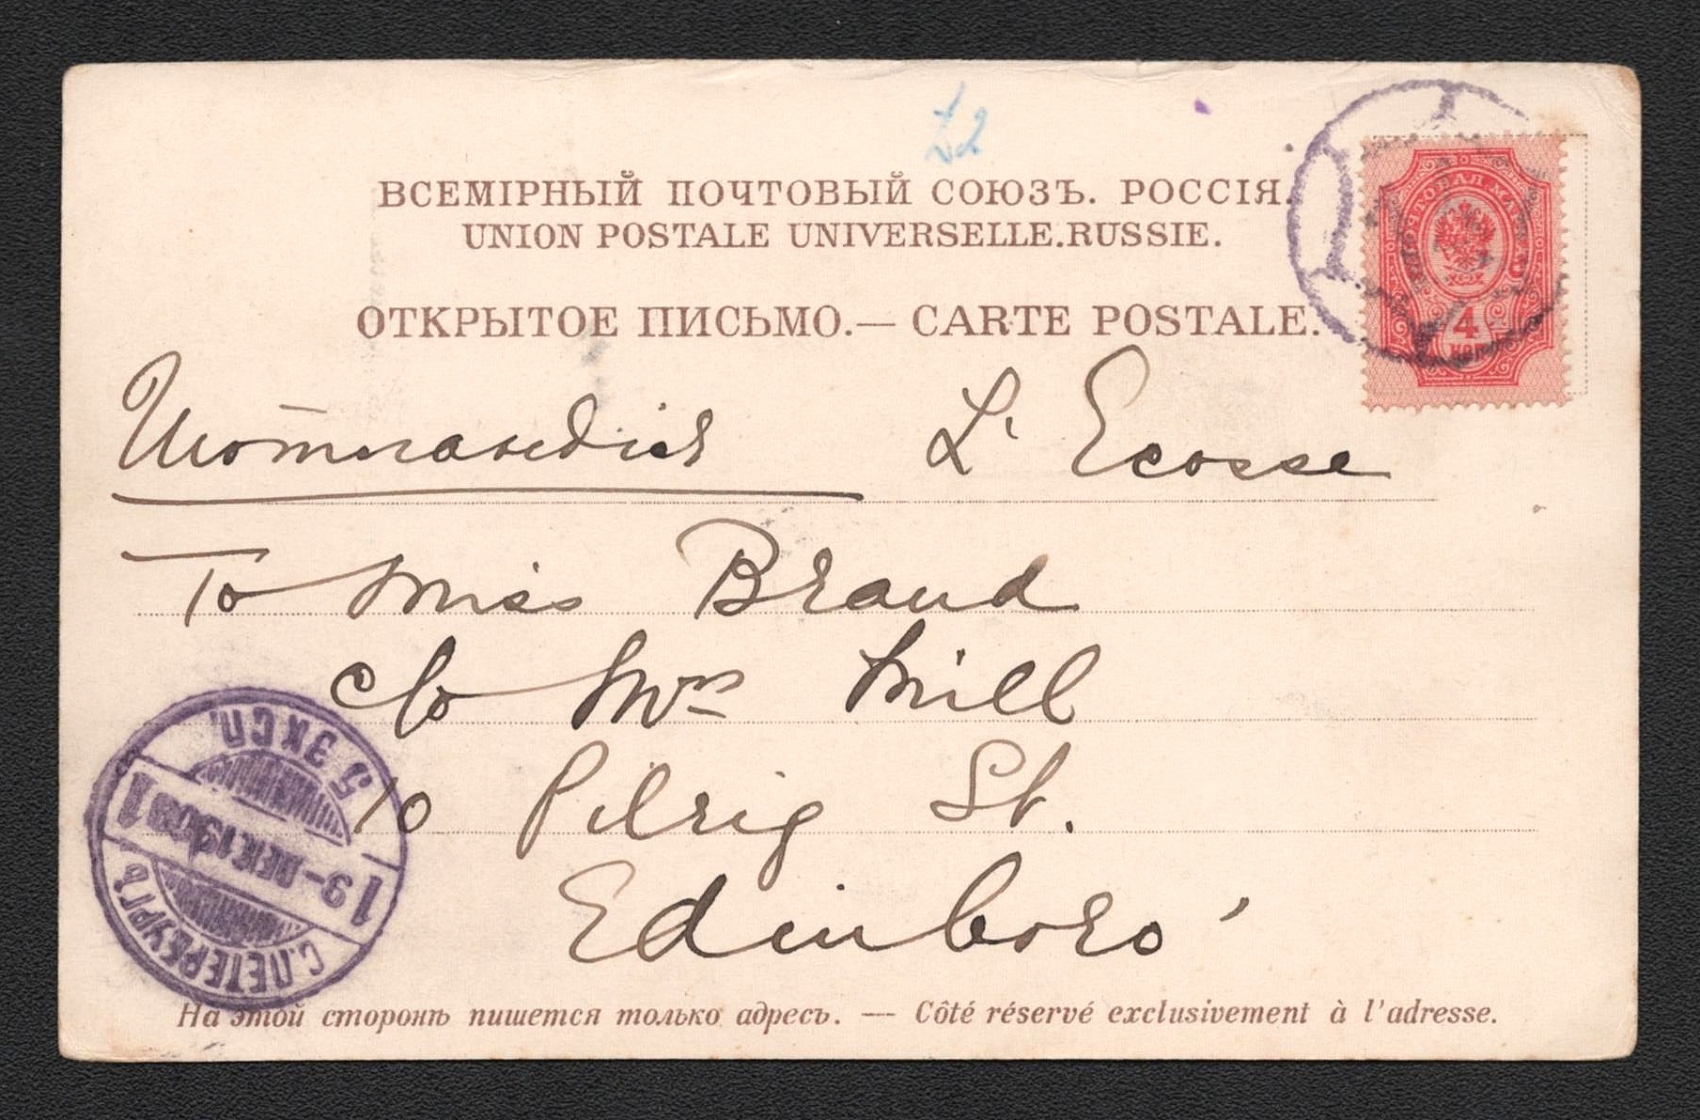 ВСЕМІРНЫЙ ПОЧТОВЫЙ СОЮЗЪ. РОССІЯ.
UNION POSTALE UNIVERSELLE.RUSSIE.
ОТКРЫТОЕ ПИСЬМО.— CARTE POSTALE.
ПОЧТОВАЯ МАРКА
4
КОП
Шотландія L'Ecosse
To Miss Brand
c/o Mrs Mill
10 Pilrig St.
Edinboro'
5 ЭКСП.
19-ДЕК.190 1
С.ПЕТЕРБУРГЪ
На этой сторонѣ пишется только адресъ. — Côté réservé exclusivement à l'adresse.